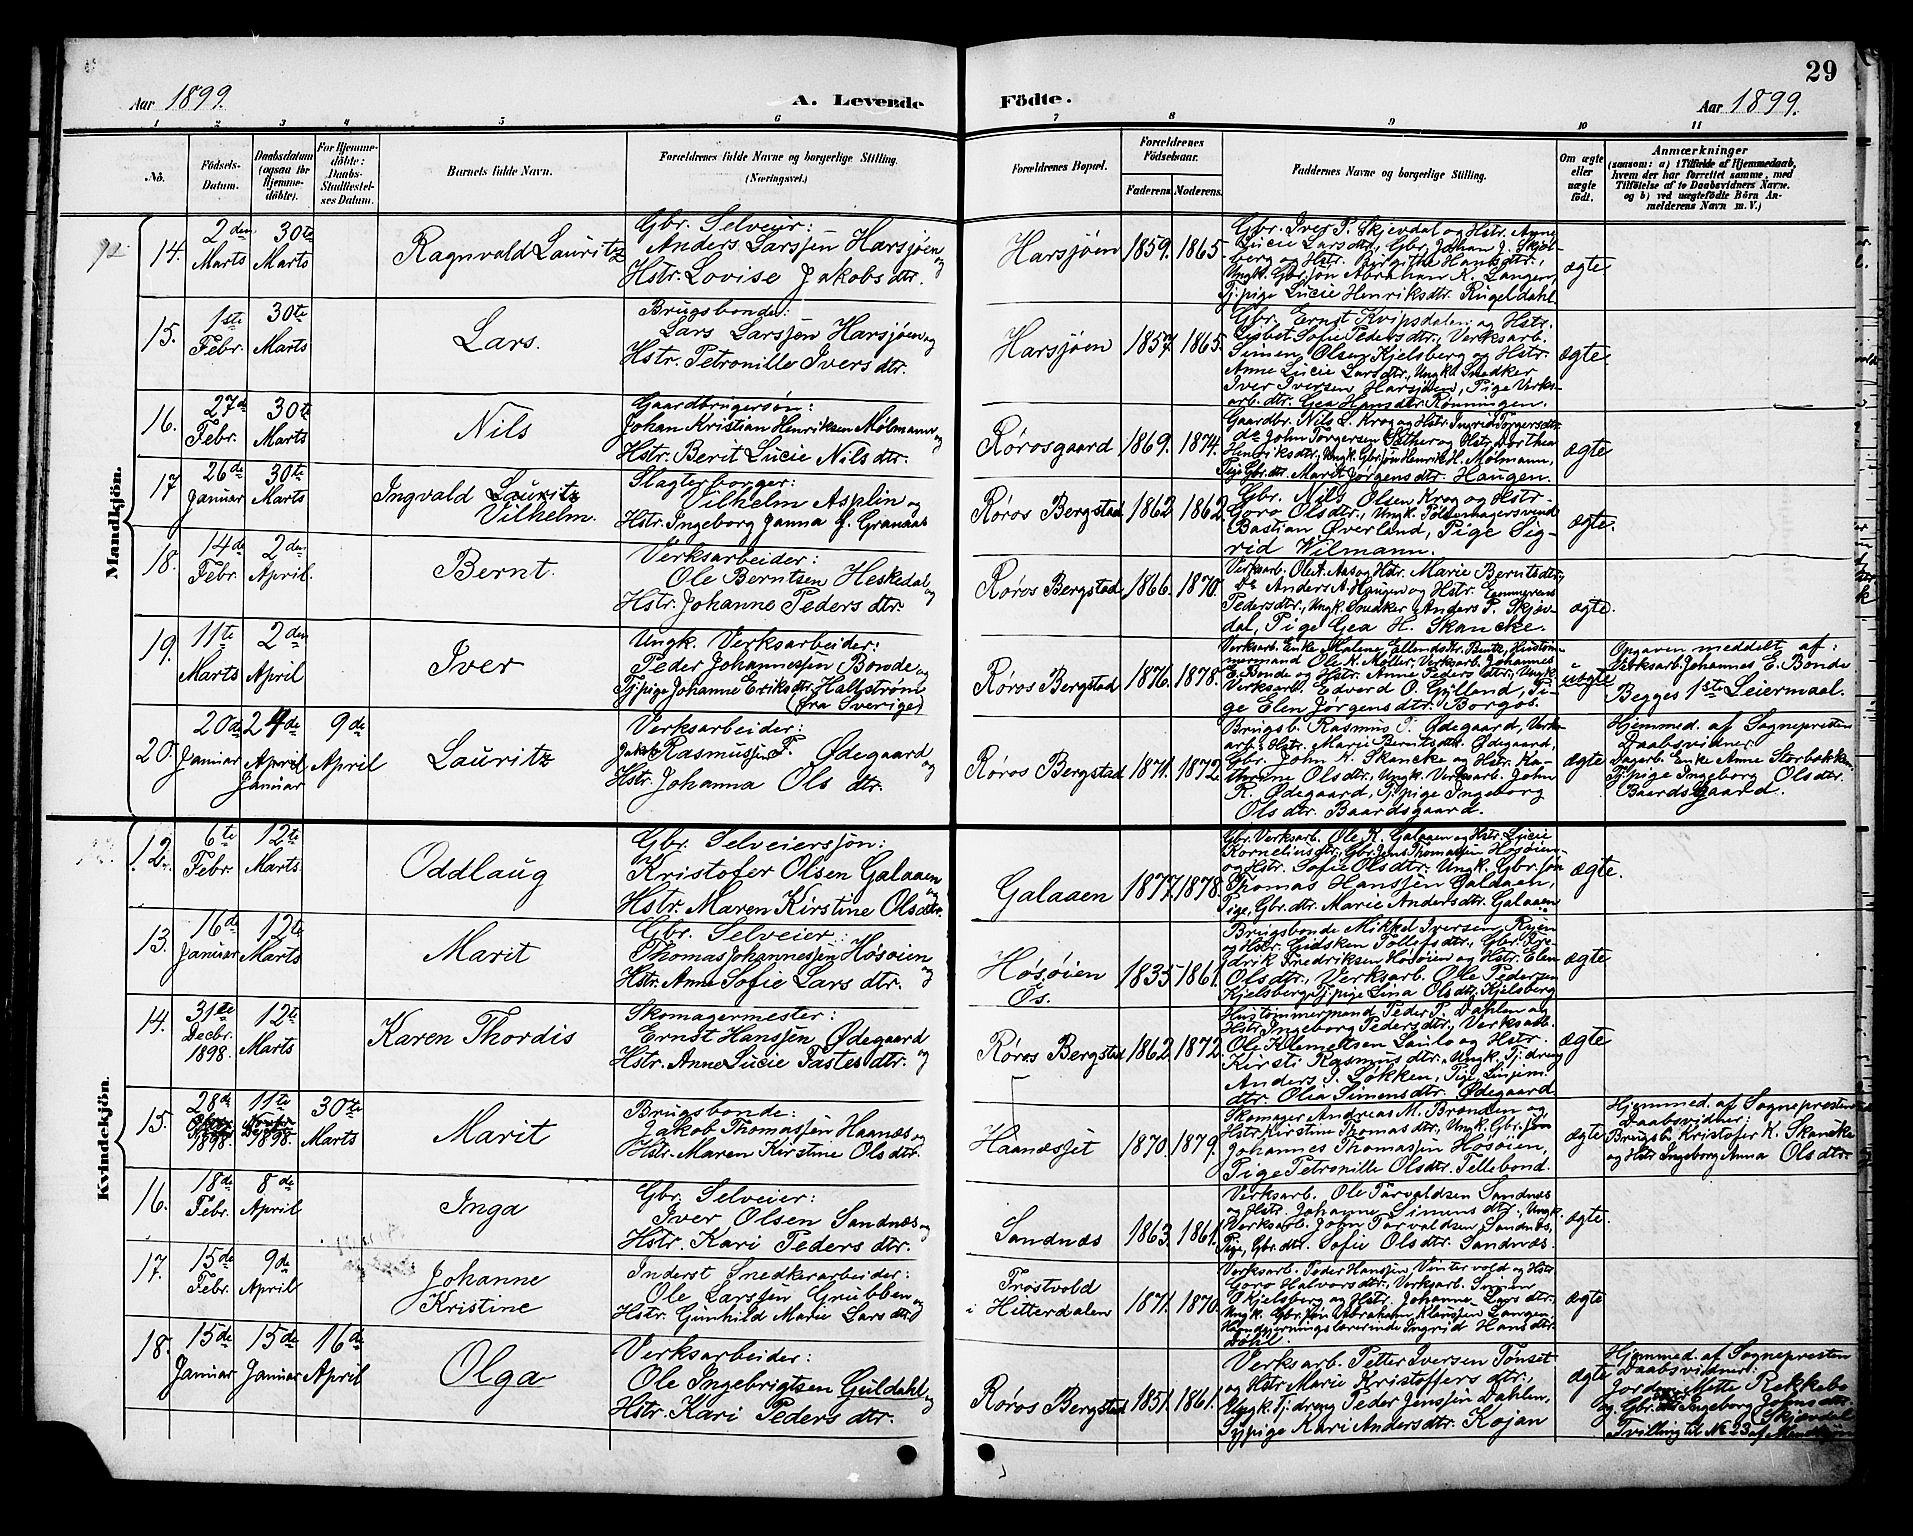 29
Aar 1899.
A. Levende
Födte.
Aar 1899.
1 2 3 4 5 6 7 8 9 10 11
No.
Födsels-
Datum.
Daabsdatum
(ogsaa for
Hjemme-
döbte).
For Hjemme-
döbte:
Daabs-
Stadfæstel-
ses Datum.
Barnets fulde Navn.
Forældrenes fulde Navne og borgerlige Stilling.
(Næringsvei.)
Forældrenes Bopæl.
Forældrenes
Födselsaar.
Faderens. Moderens.
Faddernes Navne og borgerlige Stilling.
Om ægte
eller
uægte
födt.
Anmærkninger
(saasom: a) i Tilfælde af Hjemmedaab,
hvem der har forrettet samme, med
Tilföielse af to Daabsvidners Navne.
og b) ved uægtefödte Börn An-
melderens Navn m. V.)
Mandkjön.
14.
2den
Marts
30te
Marts
Ragnvald Lauritz
Gbr. Selveier:
Anders Larssen Harsjøen og
Hstr. Lovise Jakobsdtr.
Harsjøen
1859. 1865.
Gbr. Iver P. Skjevdal og Hstr. Anne
Lucie Larsdtr., Gbr. Johan J. Skjøl-
berg og Hstr. Birgithe Hansdtr.,
Ungk. Gbr.søn Abraham K. Langen,
Tj.pige Lucie Henriksdtr. Rugeldahl
ægte
15.
1ste
Febr.
30te
Marts
Lars.
Brugsbonde:
Lars Larssen Harsjøen og
Hstr. Petronille Iversdtr.
Harsjøen
1857. 1865.
Gbr. Ernst Kvipsdalen og Hstr.
Lisbet Sofie Pedersdtr., Verksarb.
Simen Olsen Kjelsberg og Hstr.
Anne Lucie Larsdtr., Ungk. Snedker
Iver Iversen Harsjøen, Pige Verks-
arb.dtr. Gea Hansdtr. Rønningen.
ægte.
16.
27de
Febr.
30te
Marts
Nils
Gaardbrugersøn:
Johan Kristian Henriksen Mølmann og
Hstr. Berit Lucie Nilsdtr.
Rørosgaard
1869. 1874.
Gaardbr. Nils L. Krog og Hstr. Ingrid Torgersdtr.
do John Torgersen Sæther og Hstr. Dorthea
Henriksdtr., Ungk. Gbr.søn Henrik H. Mølmann,
Pige Gbr.dtr. Marit Jørgensdtr. Haugen.
ægte
17.
26de
Januar
30te
Marts
Ingvald Lauritz
Vilhelm.
Slagterborger:
Vilhelm Asplin og
Hstr. Ingeborg Janna f. Granaas
Røros Bergstad
1862. 1862.
Gbr. Nils Olsen Krog og Hstr.
Goro Olsdtr., Ungk. Pølsemagersvend
Bastian Øverland, Pige Sig-
rid Wilmann.
ægte.
18.
14de
Febr.
2den
April.
Bernt.
Verksarbeider:
Ole Berntsen Heskedal og
Hstr. Johanne Pedersdtr.
Røros Bergstad
1866. 1870.
Verksarb. Ole A. Aas og Hstr. Marie Berntsdtr.,
Do Anders A. Haugen og Hstr.
Pedersdtr., Ungk. Snedker Anders P. Skjev-
dal, Pige Gea H. Skancke.
ægte.
19.
11te
Marts
2den
April
Iver
Ungk. Verksarbeider:
Peder Johannessen Bonde og
Tj.pige Johanne Eriksdtr. Hallstrøm
(fra Sverige)
Røros Bergstad
1876. 1878.
Verksarb. Enke Malene Ellendsdtr. Bente, Hustøm-
mermand Ole K. Møller, Verksarb. Johannes
E. Bonde og Hstr. Anne Pedersdtr., Ungk.
Verksarb. Edvard O. Gylland, Pi-
ge Elen Jørgensdtr. Borgos.
uægte
Opgaven meddelt af:
Verksarb. Johannes E. Bonde
Begges 1ste Leiermaal.
20.
20de
Januar
24de
April
Januar
9de
April
Lauritz
Verksarbeider:
Jakob Rasmussen F. Ødegaard og
Hstr. Johanna Olsdtr.
Røros Bergstad
1871. 1872.
Brugsb. Rasmus T. Ødegaard, Verks-
arb. Hstr. Marie Berntsdtr. Ødegaard,
Gbr. John K. Skancke og Hstr. Ka-
thrine Olsdtr., Ungk. Verksarb. John
R. Ødegaard, Tj.pige Ingeborg
Olsdtr. Baardsgaard.
ægte
Hjemmed. af Sognepresten
Daabsvidner
Dagarb. Enke Anne Storbakken
Tj.pige Ingeborg Olsdtr.
Baardsgaard.
Kvindekjön.
12.
6te
Febr.
12te
Marts
Oddlaug
Gbr. Selveiersøn:
Kristofer Olsen Galaaen og
Hstr. Maren Kirstine Olsdtr.
Galaaen
1877. 1878.
Gbr. Verksarb. Ole K. Galaaen og Hstr. Lucie
Korneliusdtr., Gbr. Jens Thomassen Høsøien
og Hstr. Sofie Olsdtr., Ungk. Gbr.søn
Thomas Hanssen Galaaen,
Pige, Gbr.dtr. Marie Andersdtr. Galaaen
ægte.
13.
16de
Januar
12te
Marts
Marit
Gbr. Selveier:
Thomas Johannessen Høsøien og
Hstr. Anne Sofie Larsdtr.
Høsøien
Øs.
1835. 1861.
Brugsbonde Mikkel Iversen Ryen
og Hstr. Gidsken Tollefsdtr., Gbr. Fre-
drik Fredriksen Høsøien og Hstr. Elen
Olsdtr., Verksarb. Ole Pedersen
Kjelsberg, Tj.pige Lina Olsdtr. Kjelsberg
ægte
14.
31te
Decbr.
1898.
12te
Marts
Karen Thordis
Skomagermester:
Ernst Hanssen Ødegaard og
Hstr. Anne Lucie Tastesdtr.
Røros Bergstad
1862. 1872.
Hustømmermand Peder P. Dahlen og
Hstr. Ingeborg Pedersdtr., Verksarb.
Ole Klemetsen Sunlo og Hstr.
Kirsti Rasmusdtr., Ungk. Tj.dreng
Anders J. Løkken, Pige Linjem.
dtr. Olia Simensdtr. Ødegaard
ægte
15.
28de
1898.
11te
1898.
30te
Marts
Marit
Brugsbonde:
Jakob Thomassen Haanæs og
Hstr. Maren Kirstine Olsdtr.
Haanæsset
1870. 1879.
Skomager Andreas M. Brænden og
Hstr. Kirstine Thomasdtr., Ungk. Gbr.søn
Johannes Thomassen Høsøien,
Pige Petronille Olsdtr. Tellebond.
ægte
Hjemmed. af Sognepresten
Daabsvidner:
Brugsb. Kristofer K. Skancke
og Hstr. Ingeborg Anna Olsdtr.
16.
18de
Febr.
8de
April
Inga
Gbr. Selveier:
Iver Olsen Sandnæs og
Hstr. Kari Pedersdtr.
Sandnæs
1863. 1861.
Verksarb. Ole Tarvaldsen Sandnæs
og Hstr. Johanne Simensdtr., Ungk.
Verksarb. John Tarvaldsen Sandnæs,
Pige, Gbr.dtr. Sofie Olsdtr. Sandnæs.
ægte.
17.
15de
Febr.
9de
April
Johanne
Kristine
Inderst Snedkerarbeider:
Ole Larssen Grubben og
Hstr. Gunhild Marie Larsdtr.
Trostvold
i Hitterdalen
1871. 1870.
Verksarb. Peder Hanssen Vintervold og Hstr.
Goro Halvorsdtr., Verksarb. Simen
O. Kjelsberg og Hstr. Johanne Larsdtr.
Ungk. Gbr.søn Abraham Klaussen Langen
Haandgjerningslærerinde Ingrid Hansdtr.
Døhl.
ægte
18.
15de
Januar
15de
Januar
16de
April
Olga
Verksarbeider:
Ole Ingebrigtsen Guldahl og
Hstr. Kari Pedersdtr.
Røros Bergstad
1851. 1861.
Verksarb. Petter Iversen Tønset
og Hstr. Marie Kristoffersdtr.,
Ungk. Tj.dreng Peder Jenssen Dahlen,
Sypige Kari Andersdtr. Kojan
ægte
Hjemmed. af Sognepresten
Daabsvidner:
Jordm. Mette Rekkebo
og Gbr. Ingeborg Johnsdtr.
Skjævdal
Tvilling til No 23 af Mandkjøn